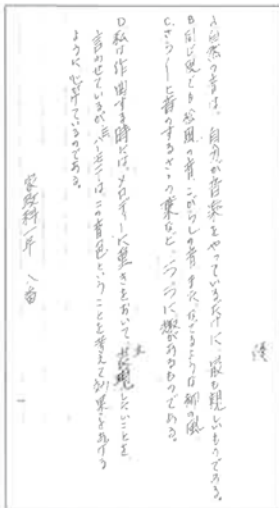 優
A自然の音は、自分が音楽をやっているだけに、最も親しいものである。
B同じ風でも松風の音、こがらしの音、またなでるような柳の風
C、さらーと音のするささの葉など、一つ一つに趣があるものである。
D私は作曲する時にはメロディーに重きをおいて表現したいことを
言わせているが、ハーモニーはこの音色ということを考えて効果をあげる
ように心がけているのである。
家政科一年 八番